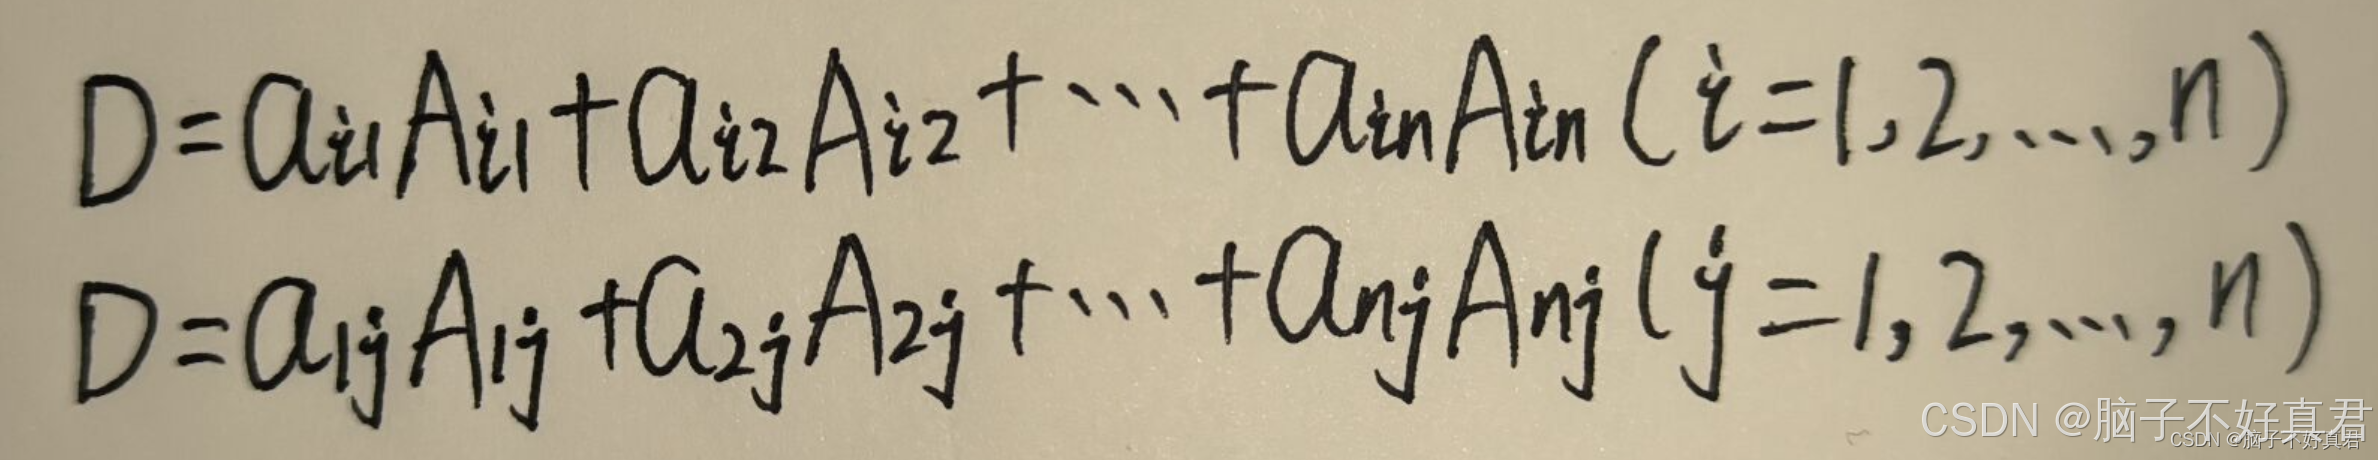 D=aᵢ₁Aᵢ₁+aᵢ₂Aᵢ₂+⋯+aᵢₙAᵢₙ(i=1,2,…,n)
D=a₁ⱼA₁ⱼ+a₂ⱼA₂ⱼ+⋯+aₙⱼAₙⱼ(j=1,2,…,n)
CSDN @脑子不好真君
CSDN @脑子不好真君